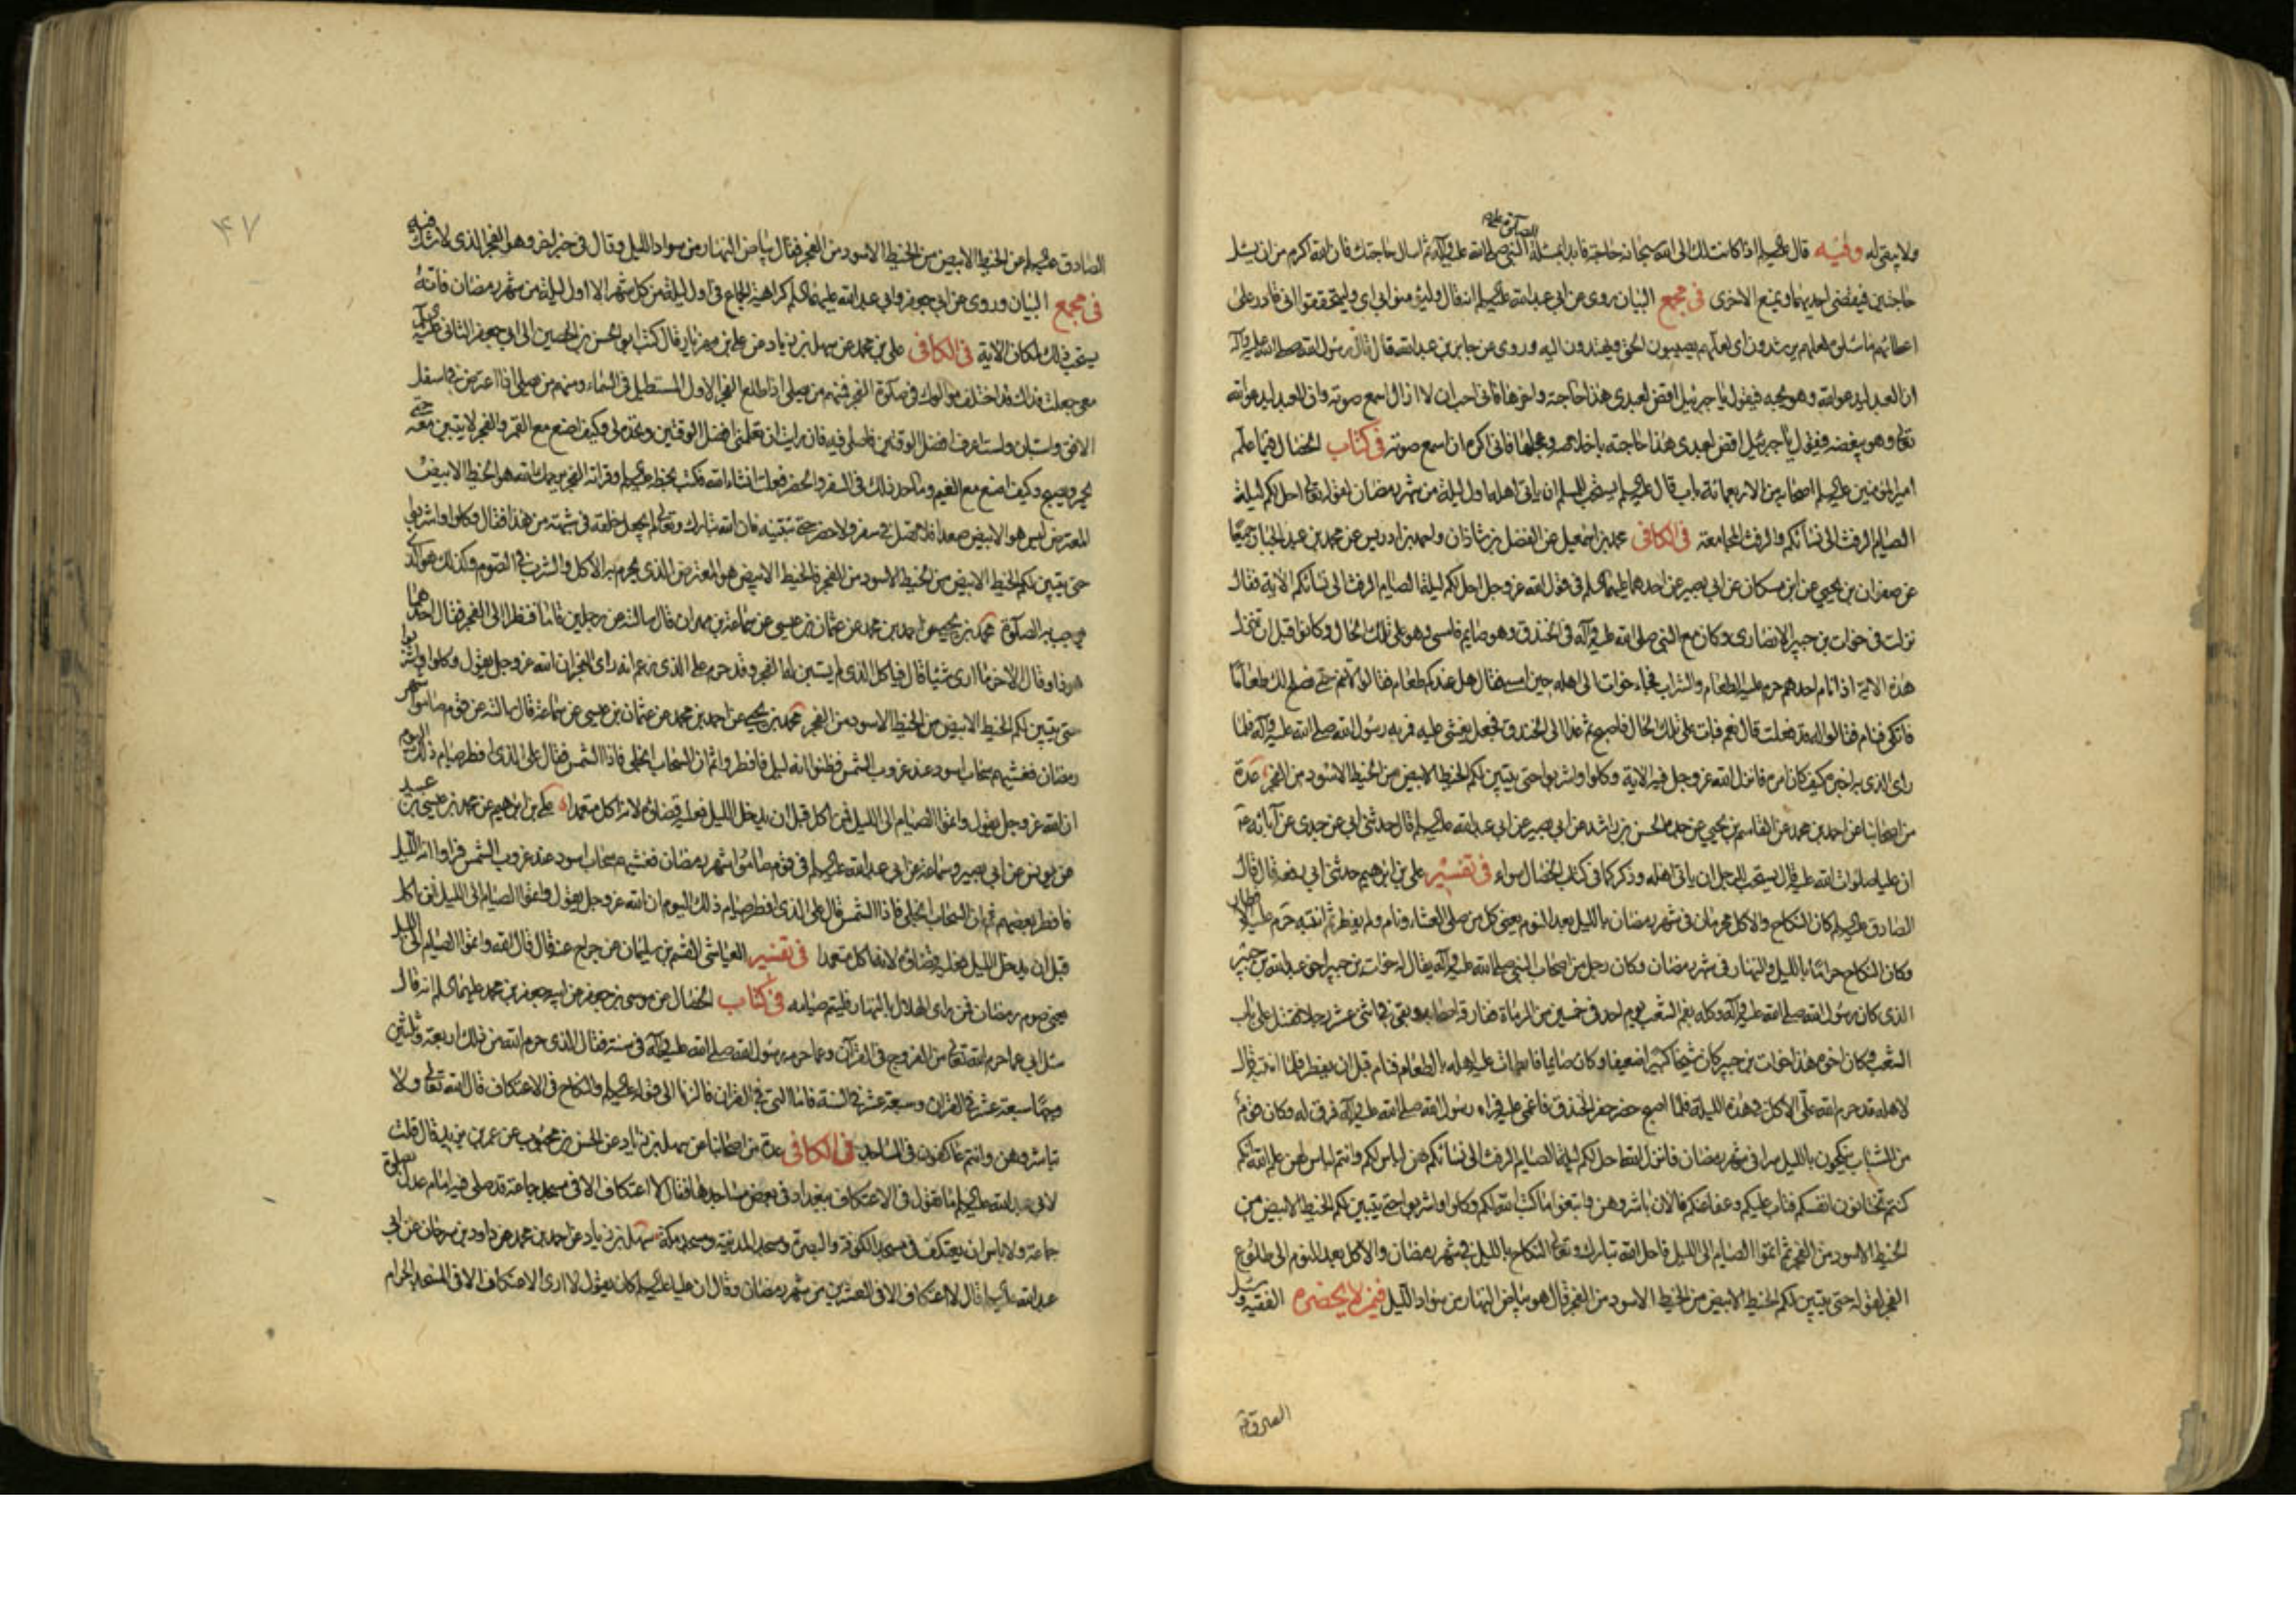 الصلوة عليه
ولا يبقى له وفيه قال عليه السلم اذا كانت لك الى الله سبحانه حاجة فابدا بمسئلة النبي صلى الله عليه وآله ثم اسال حاجتك فان الله اكرم من ان يسئل
حاجتين فيقضى احديهما ويمنع الاخرى في مجمع البيان روى عن ابي عبدالله عليه السلم انه قال وليؤمنوا بي اي وليتحققوا انى قادر على
اعطائهم ما سئلوه لعلهم يرشدون اى لعلهم يصيبون الحق ويهتدون اليه وروى عن جابر بن عبدالله قال قال رسول الله صلى الله عليه وآله
ان العبد ليدعو الله وهو يحبه فيقول يا جبرئيل اقض لعبدى هذا حاجته واخرها فانى احب ان لا ازال اسمع صوته وان العبد ليدعو الله
تعالى وهو يبغضه فيقول يا جبرئيل اقض لعبدى هذا حاجته باخلاصه وعجلها فانى اكره ان اسمع صوته في كتاب الخصال فيما علم
امير المؤمنين عليه السلم اصحابه من الاربعمائة باب قال عليه السلم يستحب للمسلم ان ياتى اهله اول ليلة من شهر رمضان لقوله تعالى احل لكم ليلة
الصيام الرفث الى نسائكم والرفث المجامعة في الكافى محمد بن اسمعيل عن الفضل بن شاذان واحمد بن ادريس عن محمد بن عبد الجبار جميعا
عن صفوان بن يحيى عن ابن مسكان عن ابى بصير عن احدهما عليهما السلم في قول الله عز وجل احل لكم ليلة الصيام الرفث الى نسائكم الاية فقال
نزلت في خوات بن جبير الانصارى وكان مع النبي صلى الله عليه وآله في الخندق وهو صايم فامسى وهو على تلك الحال وكانوا قبل ان تنزل
هذه الاية اذا نام احدهم حرم عليه الطعام والشراب فجاء خوات الى اهله حين امسى فقال هل عندكم طعام فقالوا لا تنم حتى نصلح لك طعاما
فاتكى فنام فقالوا له قد فعلت قال نعم فبات على تلك الحال فاصبح ثم غدا الى الخندق فجعل يغشى عليه فمر به رسول الله صلى الله عليه وآله فلما
راى الذى به اخبره كيف كان امره فانزل الله عز وجل فيه الاية وكلوا واشربوا حتى يتبين لكم الخيط الابيض من الخيط الاسود من الفجر عدة
من اصحابنا عن احمد بن محمد عن القاسم بن يحيى عن جده الحسن بن راشد عن ابى بصير عن ابى عبدالله عليه السلم قال حدثنى ابى عن جدى عن آبائه
ان عليا صلوات الله عليه قال يستحب للرجل ان ياتى اهله وذكر كما في كتاب الخصال سواء في تفسير على بن ابرهيم حدثنى ابى رفعه قال قال
الصادق عليه السلم كان النكاح والاكل محرمان في شهر رمضان بالليل بعد النوم يعنى كل من صلى العشاء ونام ولم يفطر ثم انتبه حرم عليه الافطار
وكان النكاح حراما بالليل والنهار في شهر رمضان وكان رجل من اصحاب النبي صلى الله عليه وآله يقال له خوات بن جبير اخو عبدالله بن جبير
الذى كان رسول الله صلى الله عليه وآله وكله بفم الشعب يوم احد في خمسين من الرماة ففارقه اصحابه وبقى في اثنى عشر رجلا فقتل على باب
الشعب وكان اخوه هذا خوات بن جبير كان شيخا كبيرا ضعيفا وكان صايما فابطات عليه اهله بالطعام فنام قبل ان يفطر فلما انتبه قال
لاهله قد حرم الله على الاكل في هذه الليلة فلما اصبح حضر حفر الخندق فاغمى عليه فراه رسول الله صلى الله عليه وآله فرق له وكان قوم
من الشباب ينكحون بالليل سرا في شهر رمضان فانزل الله احل لكم ليلة الصيام الرفث الى نسائكم هن لباس لكم وانتم لباس لهن علم الله انكم
كنتم تختانون انفسكم فتاب عليكم وعفا عنكم فالان باشروهن وابتغوا ما كتب الله لكم وكلوا واشربوا حتى يتبين لكم الخيط الابيض من
الخيط الاسود من الفجر ثم اتموا الصيام الى الليل فاحل الله تبارك وتعالى النكاح بالليل في شهر رمضان والاكل بعد النوم الى طلوع
الفجر لقوله حتى يتبين لكم الخيط الابيض من الخيط الاسود من الفجر قال هو بياض النهار من سواد الليل فيمن لا يحضره الفقيه وسئل
۴۷
الصادق عليه السلم عن الخيط الابيض من الخيط الاسود من الفجر فقال بياض النهار من سواد الليل وقال في خبر اخر وهو الفجر الذى لا شك فيه
في مجمع البيان وروى عن ابى جعفر وابى عبدالله عليهما السلم كراهية الجماع في اول ليلة من كل شهر الا اول ليلة من شهر رمضان فانه
يستحب ذلك لمكان الاية في الكافى على بن محمد عن سهل بن زياد عن على بن مهزيار قال كتب ابو الحسن بن الحصين الى ابى جعفر الثانى عليه السلم
معى جعلت فداك قد اختلف موالوك في صلوة الفجر فمنهم من يصلى اذا طلع الفجر الاول المستطيل في السماء ومنهم من يصلى اذا اعترض في اسفل
الافق واستبان ولست اعرف افضل الوقتين فاصلى فيه فان رايت ان تعلمنى افضل الوقتين وتحده لى وكيف اصنع مع القمر والفجر لا يتبين معه حتى
يحمر ويصبح وكيف اصنع مع الغيم وما حد ذلك في السفر والحضر فعلت انشاء الله فكتب بخطه عليه السلم وقراته الفجر يرحمك الله هو الخيط الابيض
المعترض ليس هو الابيض صعدا فلا تصل في سفر ولا حضر حتى تتبينه فان الله تبارك وتعالى لم يجعل خلقه في شبهة من هذا فقال وكلوا واشربوا
حتى يتبين لكم الخيط الابيض من الخيط الاسود من الفجر فالخيط الابيض هو المعترض الذى يحرم به الاكل والشرب في الصوم وكذلك هو الذى
يوجب به الصلوة محمد بن يحيى عن احمد بن محمد عن عثمان بن عيسى عن سماعة بن مهران قال سالته عن رجلين قاما فنظرا الى الفجر فقال احدهما
هو ذا وقال الاخر ما ارى شيئا قال فلياكل الذى لم يستبن له الفجر وقد حرم على الذى زعم انه راى الفجر ان الله عز وجل يقول وكلوا واشربوا
حتى يتبين لكم الخيط الابيض من الخيط الاسود من الفجر محمد بن يحيى عن احمد بن محمد عن عثمان بن عيسى عن سماعة قال سالته عن قوم صاموا شهر
رمضان فغشيهم سحاب اسود عند غروب الشمس فظنوا انه ليل فافطروا ثم ان السحاب انجلى فاذا الشمس فقال على الذى افطر صيام ذلك اليوم
ان الله عز وجل يقول واتموا الصيام الى الليل فمن اكل قبل ان يدخل الليل فعليه قضاؤه لانه اكل متعمدا على بن ابرهيم عن محمد بن عيسى بن عبيد
عن يونس عن ابى بصير وسماعة عن ابى عبدالله عليه السلم في قوم صاموا شهر رمضان فغشيهم سحاب اسود عند غروب الشمس فراوا انه الليل
فافطر بعضهم ثم ان السحاب انجلى فاذا الشمس قال على الذى افطر صيام ذلك اليوم ان الله عز وجل يقول واتموا الصيام الى الليل فمن اكل
قبل ان يدخل الليل فعليه قضاؤه لانه اكل متعمدا في تفسير العياشى القسم بن سليمان عن جراح عنه قال قال الله واتموا الصيام الى الليل
يعنى صوم رمضان فمن راى الهلال بالنهار فليتم صيامه في كتاب الخصال عن موسى بن جعفر عن ابيه جعفر بن محمد عليهما السلم انه قال
سئل ابى عما حرم الله تعالى من الفروج في القرآن وعما حرمه رسول الله صلى الله عليه وآله في سنته فقال الذى حرم الله من ذلك اربعة وثلثين
وجها سبعة عشر في القران وسبعة عشر في السنة فاما التى في القران فالزنا الى قوله عليه السلم والنكاح في الاعتكاف قال الله تعالى ولا
تباشروهن وانتم عاكفون في المساجد في الكافى عدة من اصحابنا عن سهل بن زياد عن الحسن بن محبوب عن عمر بن يزيد قال قلت
لابى عبدالله عليه السلم ما تقول في الاعتكاف ببغداد في بعض مساجدها فقال لا اعتكاف الا في مسجد جماعة قد صلى فيه امام عدل صلوة
جماعة ولا باس ان يعتكف في مسجد الكوفة والبصرة ومسجد المدينة ومسجد مكة سهل بن زياد عن احمد بن محمد عن داود بن سرحان عن ابى
عبدالله عليه السلم قال لا اعتكاف الا في العشرين من شهر رمضان وقال ان عليا عليه السلم كان يقول لا ارى الاعتكاف الا في المسجد الحرام